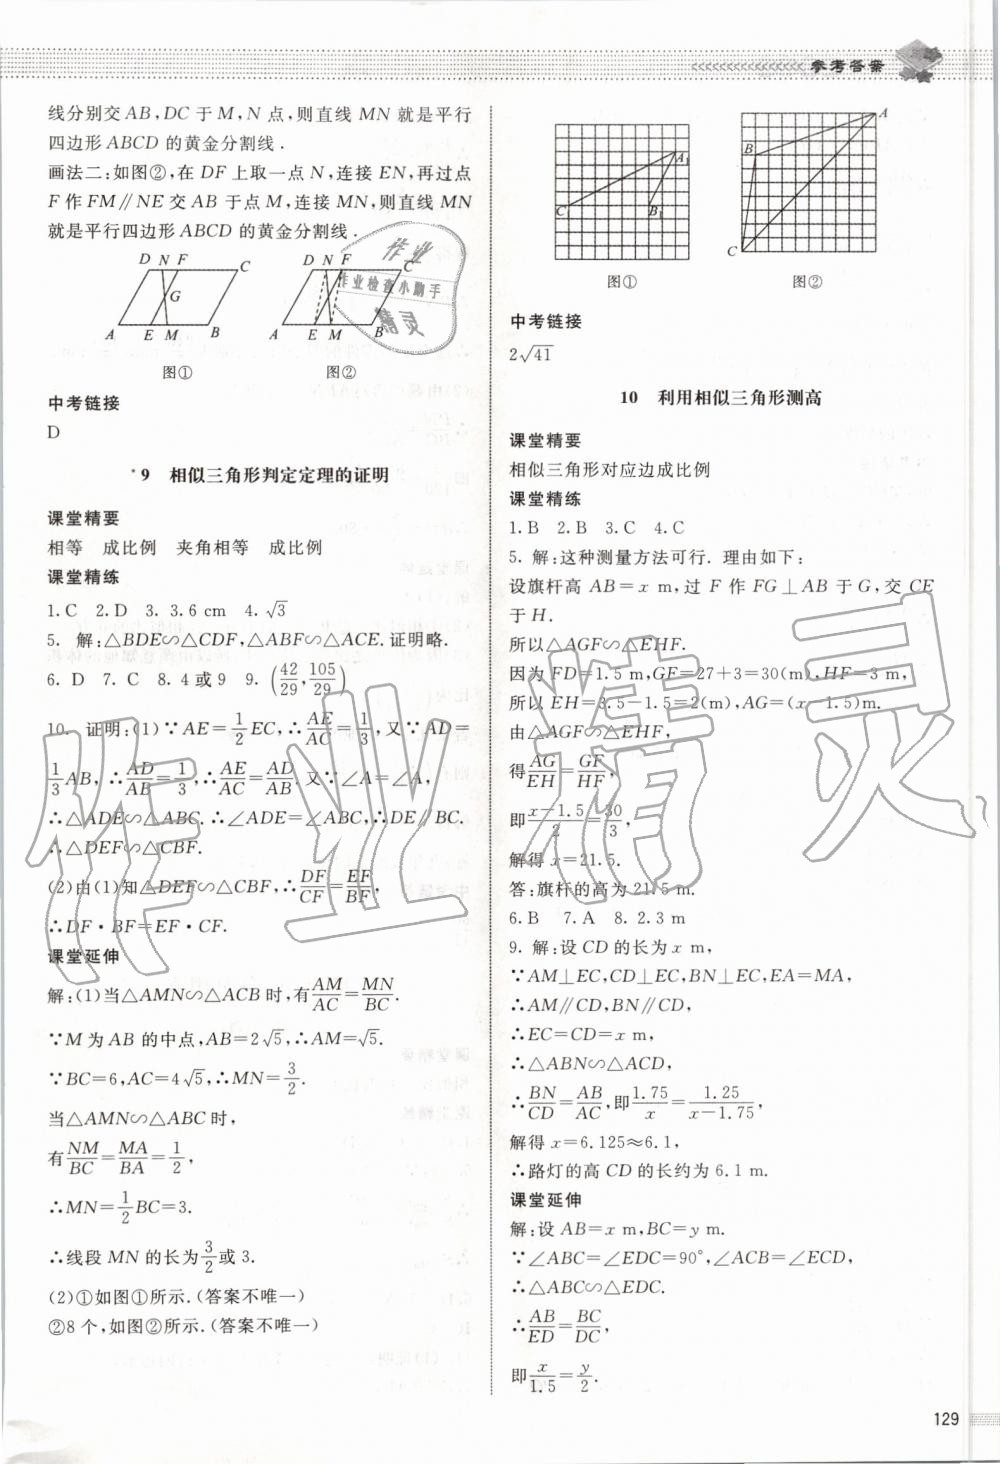 参考答案
线分别交 AB,DC 于 M,N 点,则直线 MN 就是平行
四边形 ABCD 的黄金分割线.
画法二:如图②,在 DF 上取一点 N,连接 EN,再过点
F 作 FM∥NE 交 AB 于点 M,连接 MN,则直线 MN
就是平行四边形 ABCD 的黄金分割线.
D N F C
G
A E M B
图①
D N F C
A E M B
图②
中考链接
D
*9 相似三角形判定定理的证明
课堂精要
相等 成比例 夹角相等 成比例
课堂精练
1.C 2.D 3.3.6 cm 4.√3
5. 解:△BDE∽△CDF,△ABF∽△ACE.证明略.
6.D 7.C 8.4或9 9.(42/29,105/29)
10. 证明:(1)∵AE=1/2EC,∴AE/AC=1/3,又∵AD=
1/3AB,∴AD/AB=1/3,∴AE/AC=AD/AB.又∵∠A=∠A,
∴△ADE∽△ABC.∴∠ADE=∠ABC,∴DE∥BC.
∴△DEF∽△CBF.
(2)由(1)知△DEF∽△CBF,∴DF/CF=EF/BF,
∴DF·BF=EF·CF.
课堂延伸
解:(1)当△AMN∽△ACB时,有AM/AC=MN/BC.
∵M为AB的中点,AB=2√5,∴AM=√5.
∵BC=6,AC=4√5,∴MN=3/2.
当△AMN∽△ABC时,
有NM/BC=MA/BA=1/2,
∴MN=1/2BC=3.
∴线段MN的长为3/2或3.
(2)①如图①所示.(答案不唯一)
②8个,如图②所示.(答案不唯一)
A1
C
B1
图①
A
B
C
图②
中考链接
2√41
10 利用相似三角形测高
课堂精要
相似三角形对应边成比例
课堂精练
1.B 2.B 3.C 4.C
5. 解:这种测量方法可行. 理由如下:
设旗杆高 AB=x m,过 F 作 FG⊥AB 于 G,交 CE
于 H.
所以△AGF∽△EHF.
因为 FD=1.5 m,GF=27+3=30(m),HF=3 m,
所以 EH=3.5-1.5=2(m),AG=(x-1.5)m.
由△AGF∽△EHF,
得AG/EH=GF/HF,
即x-1.5/2=30/3,
解得 x=21.5.
答:旗杆的高为21.5 m.
6.B 7.A 8.2.3 m
9. 解:设 CD 的长为 x m,
∵AM⊥EC,CD⊥EC,BN⊥EC,EA=MA,
∴AM∥CD,BN∥CD,
∴EC=CD=x m,
∴△ABN∽△ACD,
∴BN/CD=AB/AC,即1.75/x=1.25/x-1.75,
解得 x=6.125≈6.1,
∴路灯的高 CD 的长约为 6.1 m.
课堂延伸
解:设 AB=x m,BC=y m.
∵∠ABC=∠EDC=90°,∠ACB=∠ECD,
∴△ABC∽△EDC.
∴AB/ED=BC/DC,
即x/1.5=y/2.
129
作业
作业检查小助手
精灵
作业精灵